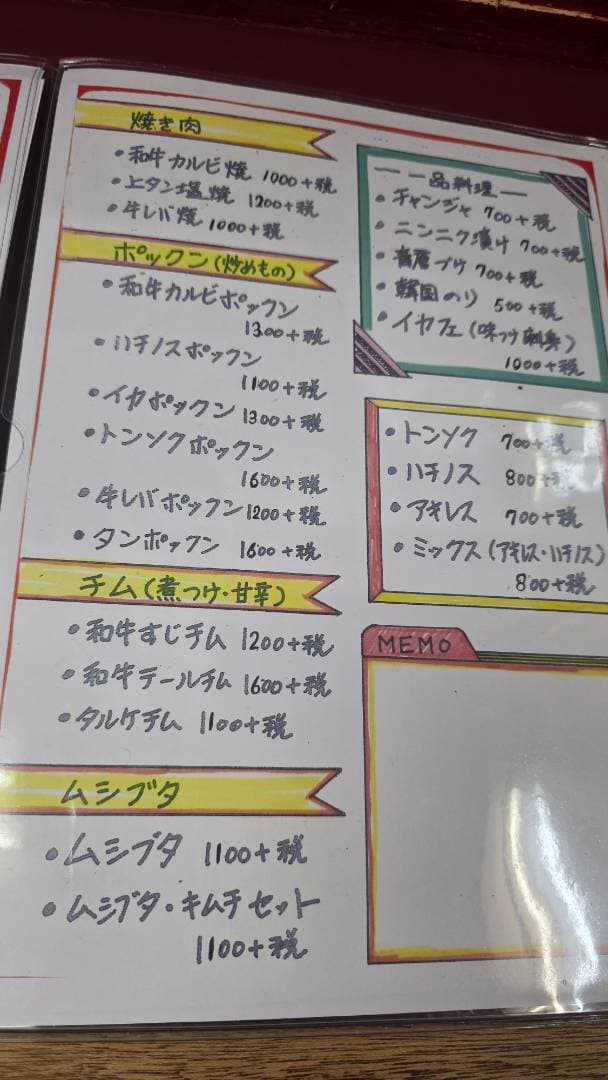 焼き肉
・和牛カルビ焼 1000+税
・上タン塩焼 1200+税
・牛レバ焼 1000+税
ポックン(炒めもの)
・和牛カルビポックン
1300+税
・ハチノスポックン
1100+税
・イカポックン 1300+税
・トンソクポックン
1600+税
・牛レバポックン 1200+税
・タンポックン 1600+税
チム(煮つけ・甘辛)
・和牛すじチム 1200+税
・和牛テールチム 1600+税
・タルケチム 1100+税
ムシブタ
・ムシブタ 1100+税
・ムシブタ・キムチセット
1100+税
一品料理
・チャンジャ 700+税
・ニンニク漬け 700+税
・唐づけ 700+税
・韓国のり 500+税
・イヤフェ(味つけ刺身)
1000+税
・トンソク 700+税
・ハチノス 800+税
・アキレス 700+税
・ミックス(アキレス・ハチノス)
800+税
MEMO